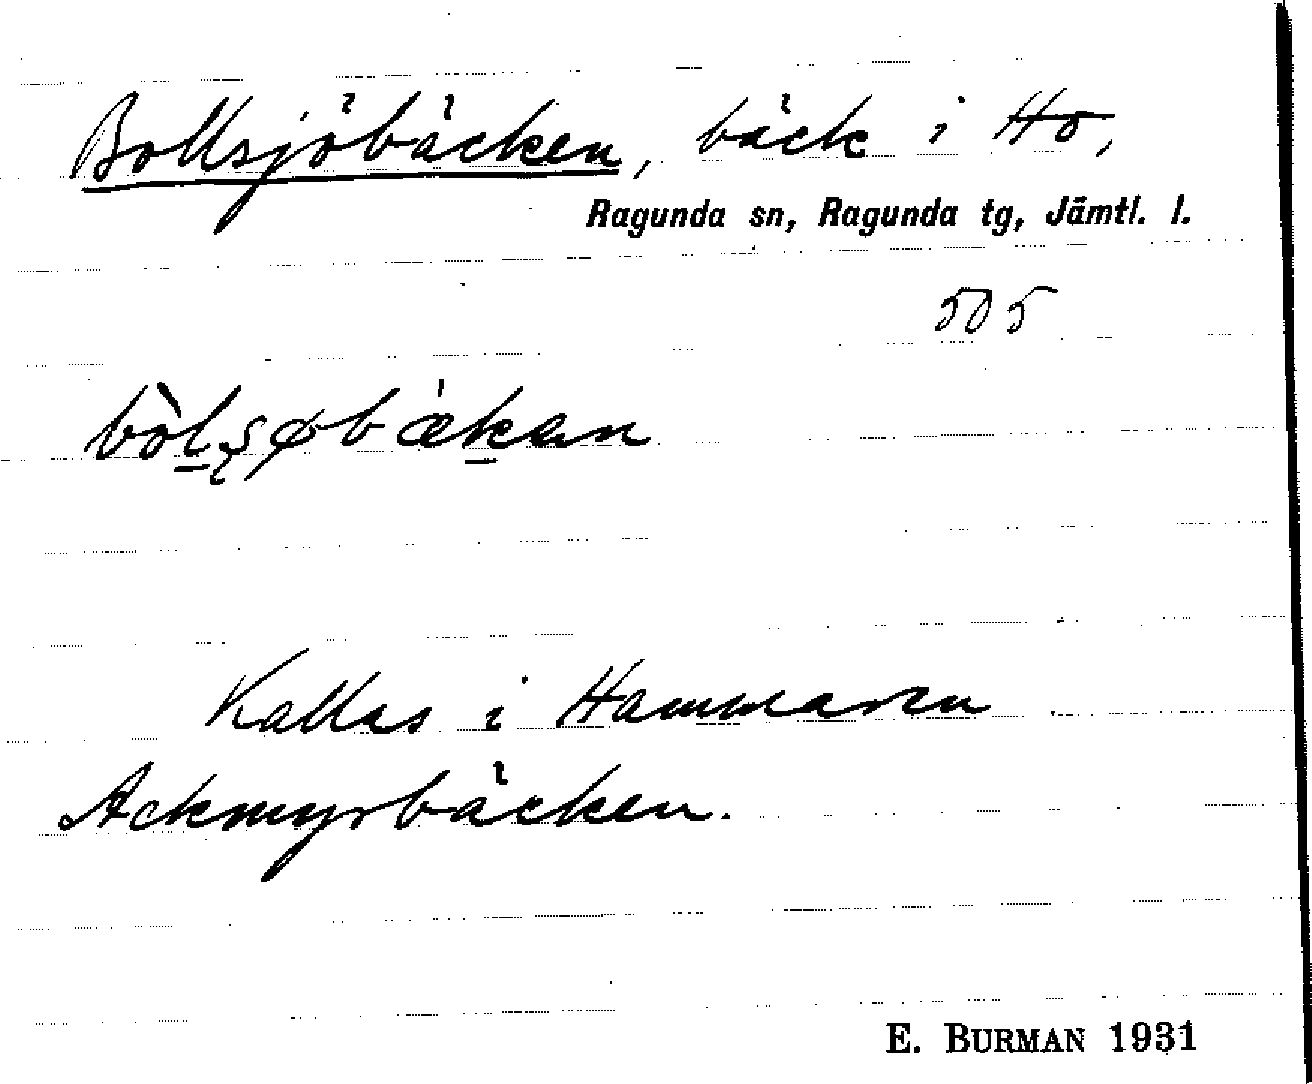 Bollsjöbäcken, bäck i Ho,
Ragunda sn, Ragunda tg, Jämtl. l.
505
bòl̲ʂøbǽk̲an
Kallas i Hammaren
Ackmyrbäcken.
E. BURMAN 1931